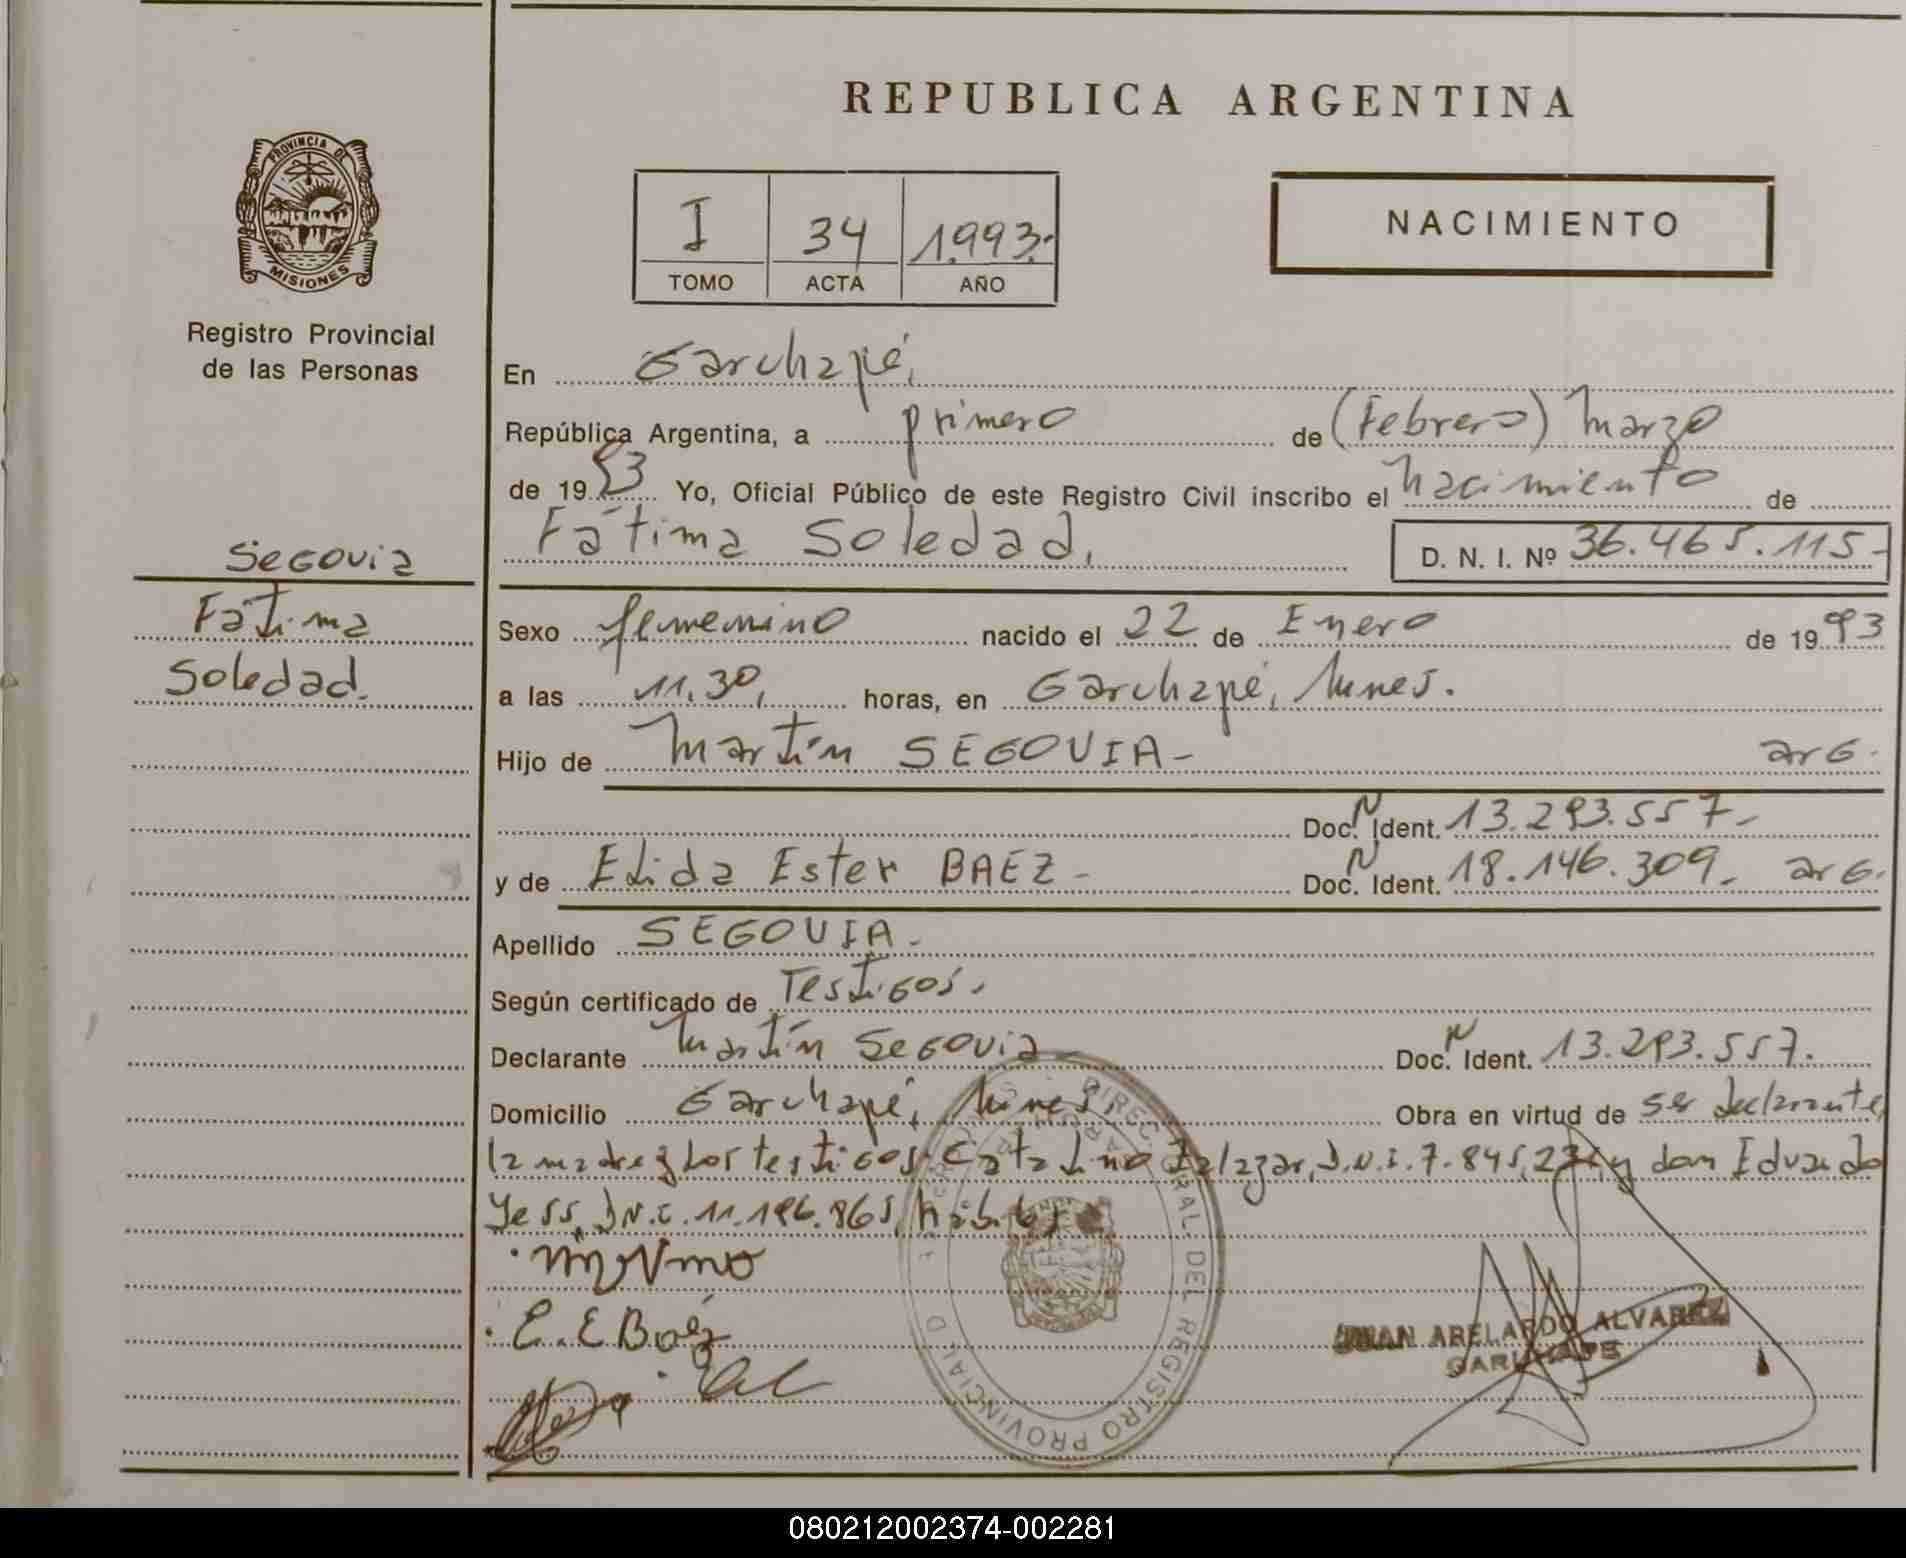 REPUBLICA ARGENTINA
PROVINCIA DE
MISIONES
Registro Provincial
de las Personas
I 34 1.993.-
TOMO ACTA AÑO
NACIMIENTO
En Garuhapé,
República Argentina, a primero de (Febrero) Marzo
de 1993 Yo, Oficial Público de este Registro Civil inscribo el Nacimiento de
Fátima Soledad, D. N. I. Nº 36.465.115-
Segovia
Fátima
Soledad.
Sexo femenino nacido el 22 de Enero de 1993
a las 11.30, horas, en Garuhapé, Mnes.
Hijo de Martín SEGOVIA- arg.
Doc. N Ident. 13.293.557-
y de Elida Ester BAEZ- Doc. N Ident. 18.146.309- arg.
Apellido SEGOVIA-
Según certificado de Testigos.
Declarante Martín Segovia- Doc. N Ident. 13.293.557.
Domicilio Garuhapé, Mnes. Obra en virtud de ser declarante,
la madre y los testigos Catalino Zalazar, D.N.I. 7.845.2 y don Eduardo
Yess, D.N.I. 11.196.865, hábiles
E. E Baéz
JUAN ABELARDO ALVAREZ
GARUHAPE
DIREC RAL DEL REGISTRO PROVINCIAL D
080212002374-002281